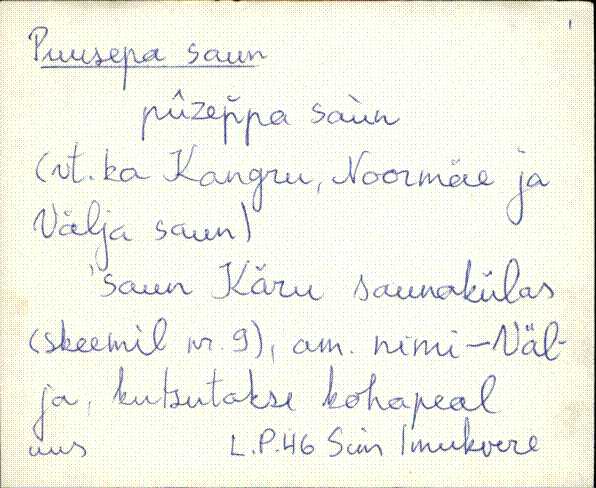 Puusepa saun
pûzep̆pa saùn
(vt. ka Kangru, Noormäe ja
Välja saun)
'saun Käru saunakülas
(skeemil nr. 9), am. nimi – Väl-
ja, kutsutakse kohapeal
uus L.P.46 Sim Imukvere